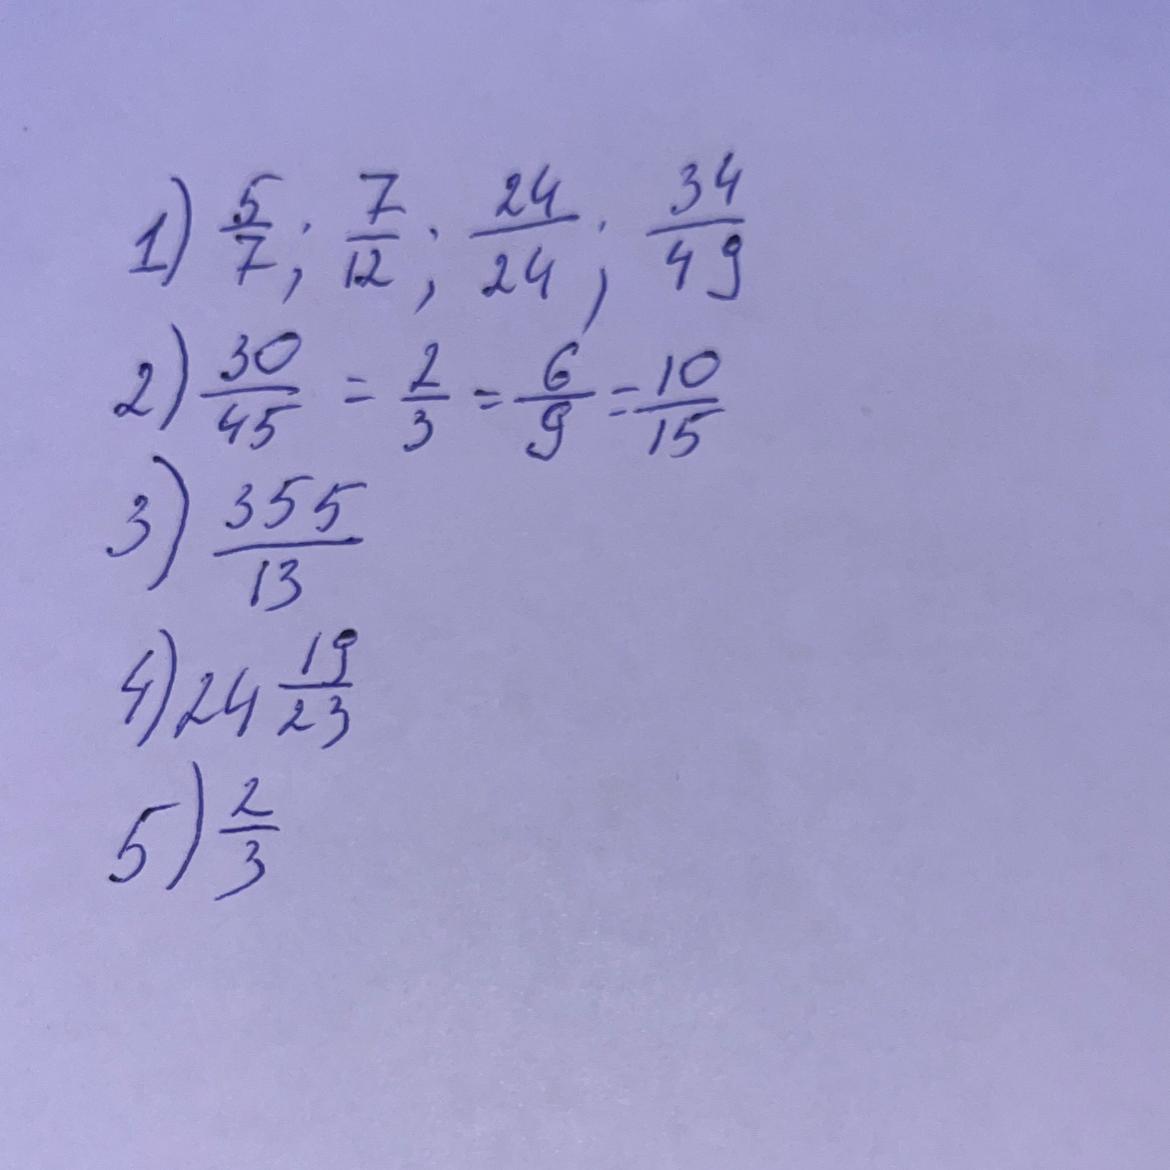 1) 5/7; 7/12; 24/24; 34/49
2) 30/45 = 2/3 = 6/9 = 10/15
3) 355/13
4) 24 19/23
5) 2/3